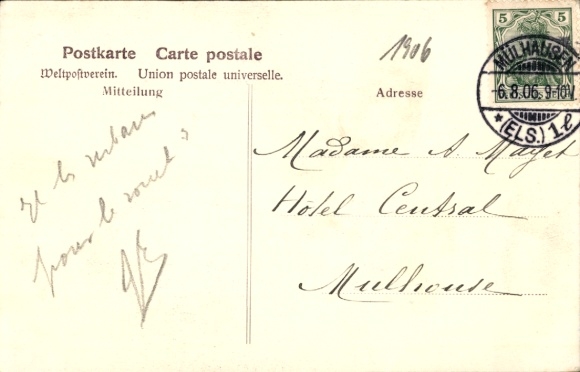 Postkarte Carte postale
Weltpostverein. Union postale universelle.
Mitteilung
Adresse
1906
5 5
MÜLHAUSEN
-6.8.06.9-10V.
* (ELS.) 1.l
pour le
Madame A. Mayet
Hôtel Central
Mulhouse